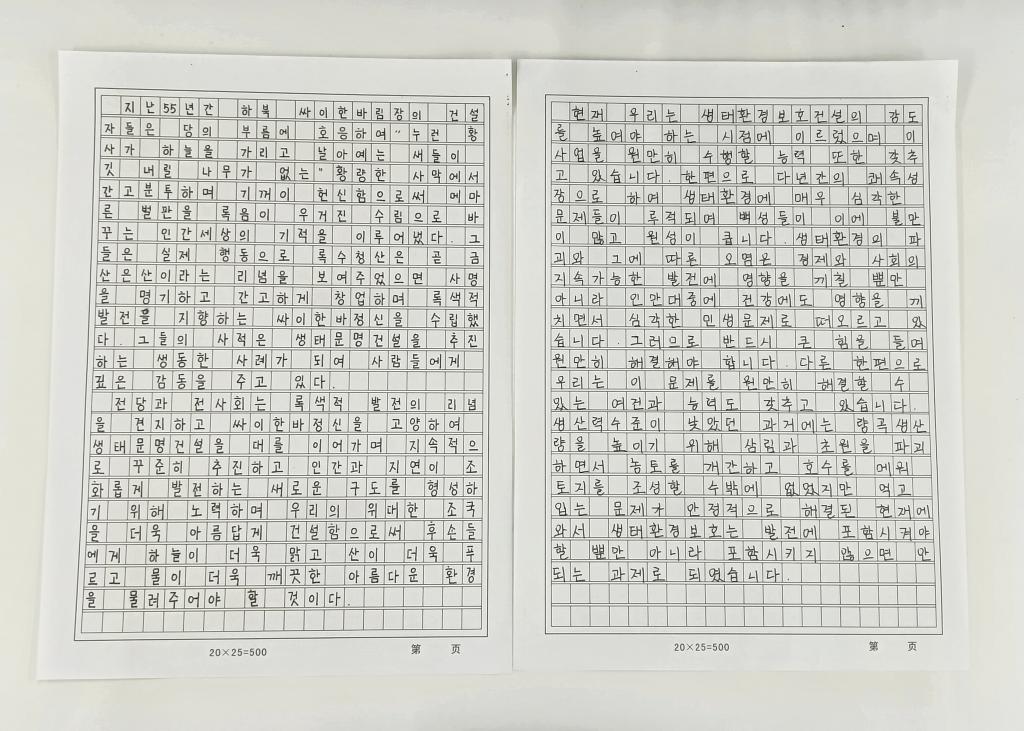 지난 55년간 하북 싸이한바림장의 건설
자들은 당의 부름에 호응하여 "누런 황
사가 하늘을 가리고 날아예는 새들이
깃 버릴 나무가 없는" 황량한 사막에서
간고분투하며 기꺼이 헌신함으로써 메마
른 벌판을 록음이 우거진 수림으로 바
꾸는 인간세상의 기적을 이루어냈다. 그
들은 실제 행동으로 록수청산은 곧 금
산은산이라는 리념을 보여주었으면 사명
을 명기하고 간고하게 창업하며 록색적
발전을 지향하는 싸이한바정신을 수립했
다. 그들의 사적은 생태문명건설을 추진
하는 생동한 사례가 되여 사람들에게
깊은 감동을 주고 있다.
전당과 전사회는 록색적 발전의 리념
을 견지하고 싸이한바정신을 고양하여
생태문명건설을 대를 이어가며 지속적으
로 꾸준히 추진하고 인간과 지연이 조
화롭게 발전하는 새로운 구도를 형성하
기 위해 노력하며 우리의 위대한 조국
을 더욱 아름답게 건설함으로써 후손들
에게 하늘이 더욱 맑고 산이 더욱 푸
르고 물이 더욱 깨끗한 아름다운 환경
을 물려주어야 할 것이다.
20×25=500
第 页
현재 우리는 생태환경보호건설의 강도
를 높여야 하는 시점에 이르렀으며 이
사업을 원만히 수행할 능력 또한 갖추
고 있습니다. 한편으로 다년간의 쾌속성
장으로 하여 생태환경에 매우 심각한
문제들이 루적되여 백성들이 이에 불만
이 많고 원성이 큽니다. 생태환경의 파
괴와 그에 따른 오염은 경제와 사회의
지속가능한 발전에 영향을 끼칠 뿐만
아니라 인민대중에 건강에도 영향을 끼
치면서 심각한 민생문제로 떠오르고 있
습니다. 그러므로 반드시 큰 힘을 들여
원만히 해결해야 합니다. 다른 한편으로
우리는 이 문제를 원만히 해결할 수
있는 여건과 능력도 갖추고 있습니다.
생산력수준이 낮았던 과거에는 량곡생산
량을 높이기 위해 삼림과 초원을 파괴
하면서 농토를 개간하고 호수를 에워
토지를 조성할 수밖에 없었지만 먹고
입는 문제가 안정적으로 해결된 현재에
와서 생태환경보호는 발전에 포함시켜야
할 뿐만 아니라 포함시키지 않으면 안
되는 과제로 되였습니다.
20×25=500
第 页